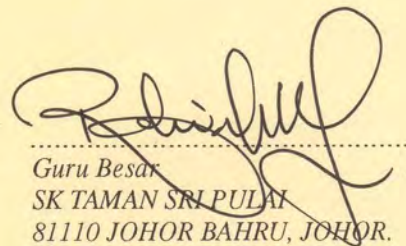 Guru Besar
SK TAMAN SRI PULAI
81110 JOHOR BAHRU, JOHOR.